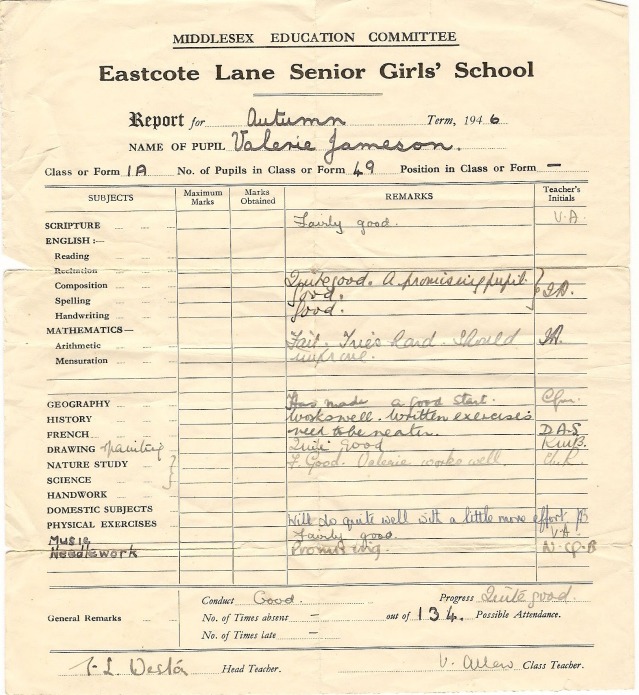 MIDDLESEX EDUCATION COMMITTEE
Eastcote Lane Senior Girls' School
Report for Autumn Term, 1946
NAME OF PUPIL Valerie Jameson.
Class or Form 1A No. of Pupils in Class or Form 49 Position in Class or Form —
SUBJECTS Maximum Marks Marks Obtained REMARKS Teacher's Initials
SCRIPTURE Fairly good. V.A
ENGLISH :—
Reading
Recitation
Composition Quite good. A promising pupil.
Spelling Good.
Handwriting Good.
MATHEMATICS—
Arithmetic Fair. Tries hard. Should
Mensuration improve.
GEOGRAPHY Has made a good start.
HISTORY Works well. Written exercises
FRENCH need to be neater. D.A.S
DRAWING Painting Quite Good K.M.B.
NATURE STUDY F. Good. Valerie works well.
SCIENCE
HANDWORK
DOMESTIC SUBJECTS
PHYSICAL EXERCISES Will do quite well with a little more effort
Music Fairly good. V.A
Needlework Promising.
General Remarks
Conduct Good. Progress Quite good.
No. of Times absent — out of 134. Possible Attendance.
No. of Times late —
Head Teacher. V. Allen Class Teacher.